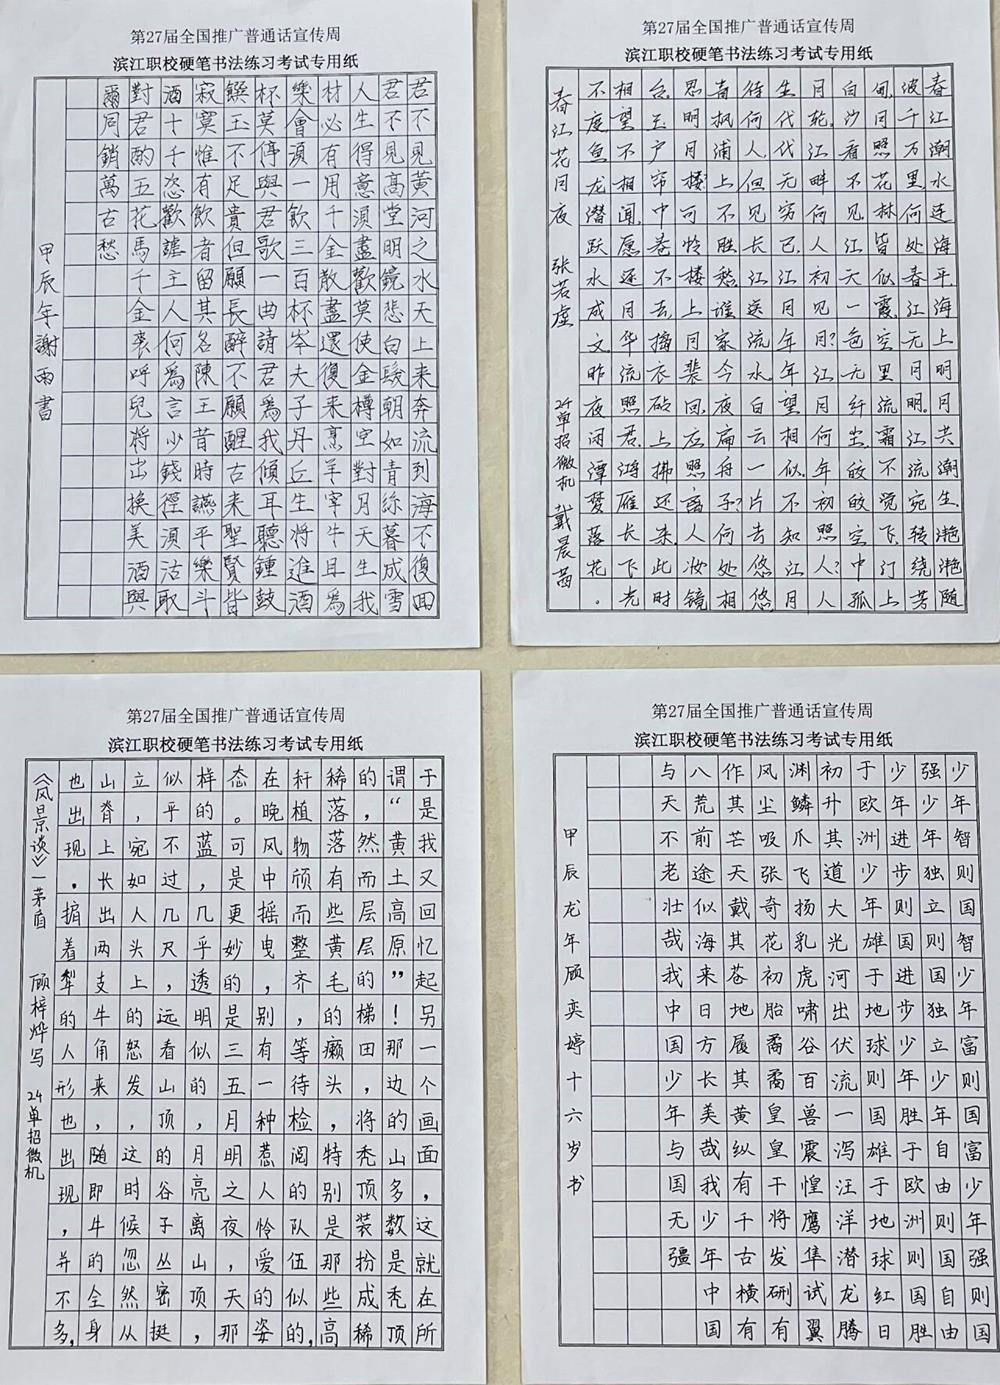 第27届全国推广普通话宣传周
滨江职校硬笔书法练习考试专用纸
君不見黃河之水天上来奔流到海不復回
君不見高堂明鏡悲白髮朝如青絲暮成雪
人生得意須盡歡莫使金樽空對月天生我
材必有用千金散盡還復来烹羊宰牛且為
樂會須一飲三百杯岑夫子丹丘生將進酒
杯莫停與君歌一曲請君為我傾耳聽鍾鼓
饌玉不足貴但願長醉不願醒古来聖賢皆
寂寞惟有飲者留其名陳王昔時讌平樂斗
酒十千恣歡謔主人何為言少錢徑須沽取
對君酌五花馬千金裘呼兒將出換美酒與
爾同銷萬古愁
甲辰年謝雨書
第27届全国推广普通话宣传周
滨江职校硬笔书法练习考试专用纸
春江潮水连海平.海上明月共潮生.滟滟随
波千万里何处春江无月明.江流宛转绕芳
甸,月照花林皆似霰.空里流霜不觉飞.汀上
白沙看不见.江天一色无纤尘.皎皎空中孤
月轮.江畔何人初见月?江月何年初照人?人
生代代无穷已.江月年年望相似.不知江月
待何人.但见长江送流水.白云一片去悠悠
青枫浦上不胜愁.谁家今夜扁舟子?何处相
思明月楼?可怜楼上月裴回.应照离人妆镜
台.玉户帘中卷不去.捣衣砧上拂还来.此时
相望不相闻.愿逐月华流照君.鸿雁长飞光
不度鱼龙潜跃水成文.昨夜闲潭梦落花.
春江花月夜 张若虚 24单招微机 戴晨茜
第27届全国推广普通话宣传周
滨江职校硬笔书法练习考试专用纸
于是我又回忆起另一个画面，这就在所
谓“黄土高原”！那边的山多数是秃顶
的，然而层层的梯田，将秃顶装扮成稀
稀落落有些黄毛的癞头，特别是那些高
秆植物颀而整齐，等待检阅的队伍似的，
在晚风中摇曳，别有一种惹人怜爱的姿
态。可是更妙的是三五月明之夜，天那
样的蓝，几乎透明似的，月亮离山顶，
似乎不过几尺，远看山顶的谷子丛密挺
立，宛如人头上的怒发，这时候忽然从
山脊上长出两支牛角来，随即牛的全身
也出现。掮着犁的人形也出现，并不多，
《风景谈》—茅盾 顾梓烨写 24单招微机
第27届全国推广普通话宣传周
滨江职校硬笔书法练习考试专用纸
少年智则国智少年富则国富少年强则国
强少年独立则国独立少年自由则国自由
少年进步则国进步少年胜于欧洲则国胜
于欧洲少年雄于地球则国雄于地球红日
初升其道大光河出伏流一泻汪洋潜龙腾
渊鳞爪飞扬乳虎啸谷百兽震惶鹰隼试翼
风尘吸张奇花初胎矞矞皇皇干将发硎有
作其芒天戴其苍地履其黄纵有千古横有
八荒前途似海来日方长美哉我少年中国
与天不老壮哉我中国少年与国无疆
甲辰龙年顾奕婷十六岁书